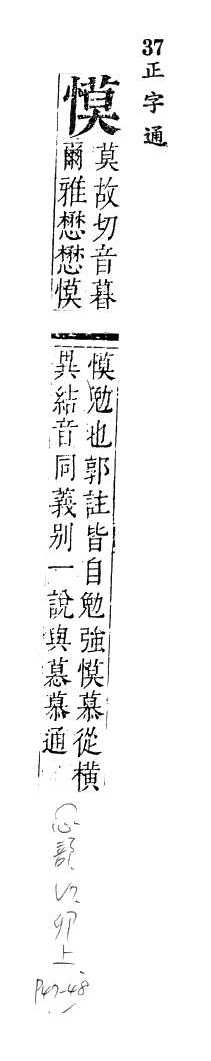 37正字通
慔
莫故切音暮
爾雅懋懋慔
慔勉也郭註皆自勉強慔慕從橫
異結音同義別一說與慕通
卯上
P47-48